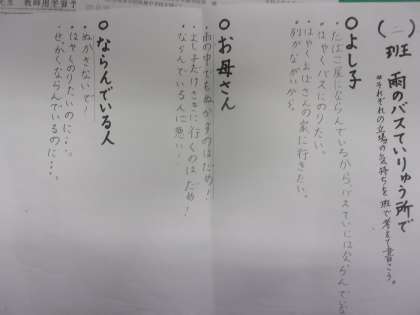 (二)班 雨のバスていりゅう所で
※それぞれの立場の気持ちを班で考えて書こう。
○よし子
・たばこ屋にならんでいるから、バスていにはならんでいな
・はやくバスにのりたい。
・はやくおばさんの家に行きたい。
○お母さん
・雨の中でもぬかすのはだめ!
・よし子だけさきに行くのはだめ!
・ならんでいる人に悪い!
○ならんでいる人
・ぬかさないで
・はやくのりたいのに…。
・せっかくならんでいるのに…。